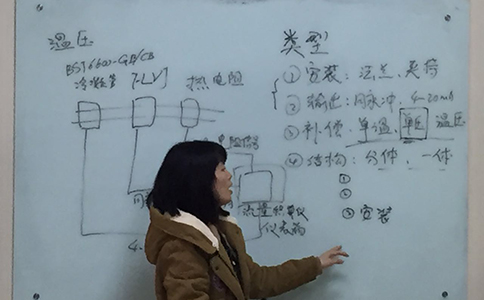 温压
BST6600-GB/CB
冷凝管 7-LVJ 热电阻
电阻信号
流量积算仪
仪表箱
4-
类型
① 安装：法兰、夹持
② 输出：脉冲、4-20mA
③ 补偿：单温、单压 温压
④ 结构：分体、一体
①
②
③ 安装